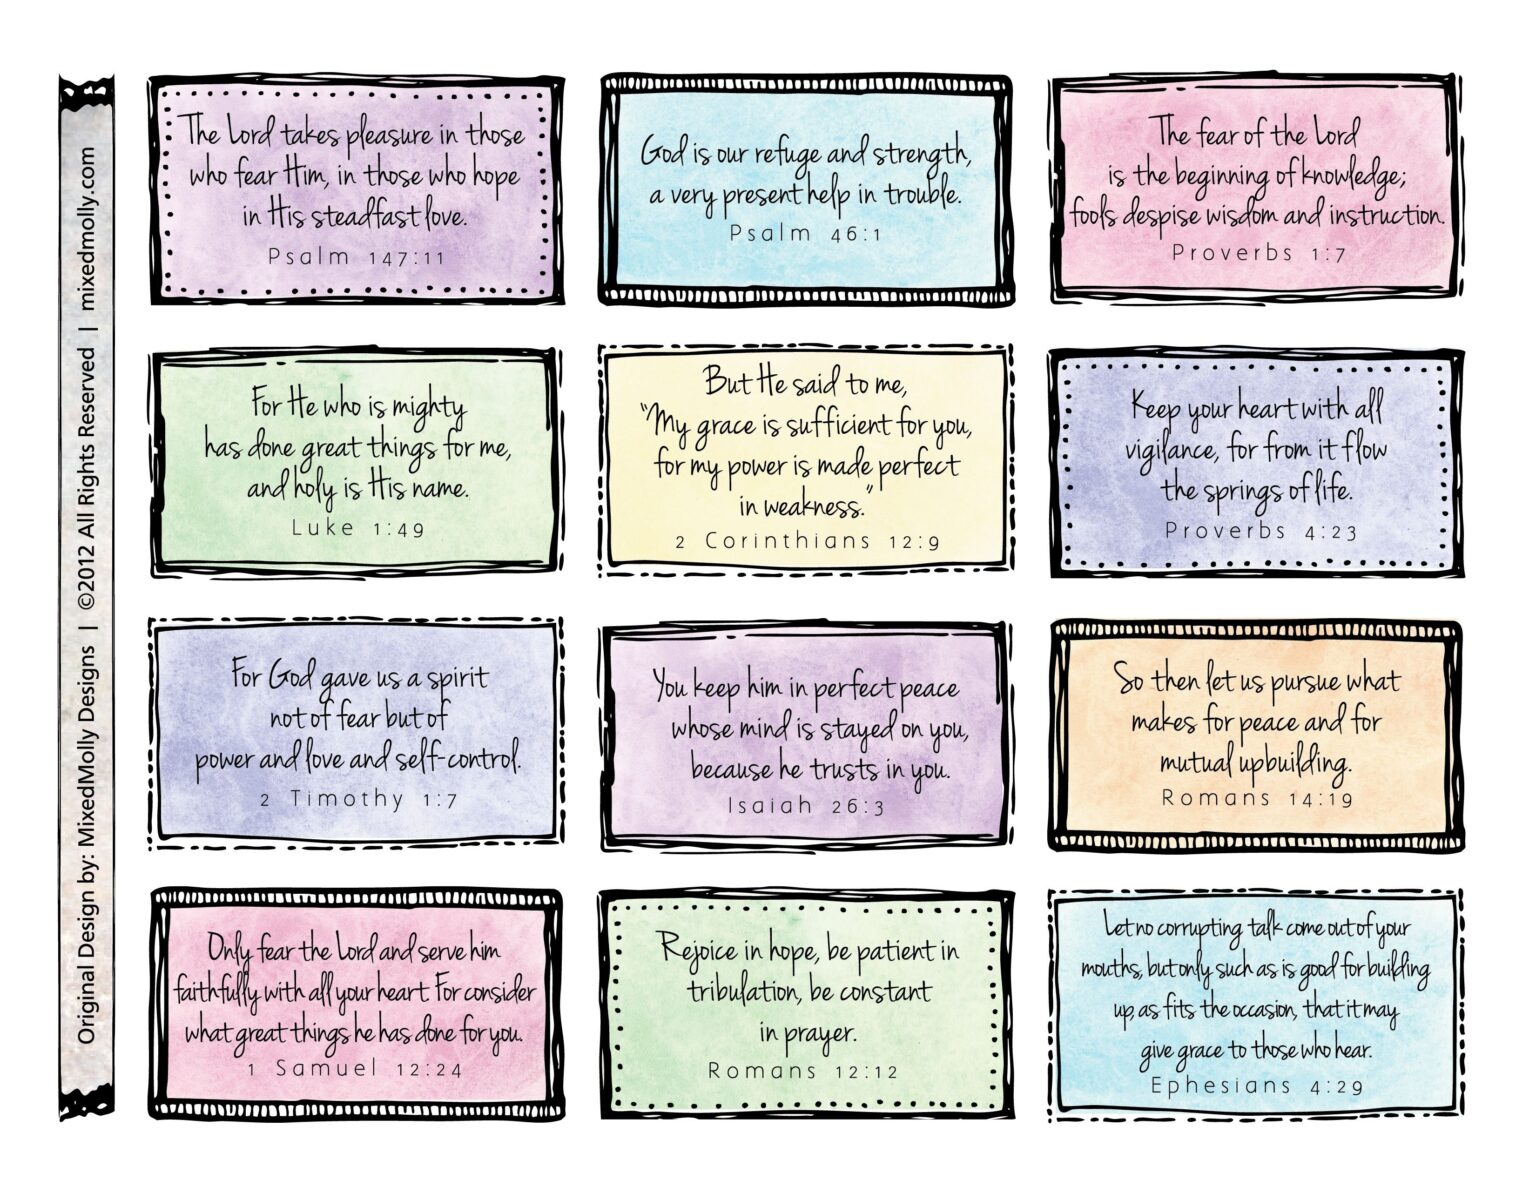 Original Design by: MixedMolly Designs | ©2012 All Rights Reserved | mixedmolly.com
The Lord takes pleasure in those
who fear Him, in those who hope
in His steadfast love.
Psalm 147:11
God is our refuge and strength,
a very present help in trouble.
Psalm 46:1
The fear of the Lord
is the beginning of knowledge;
fools despise wisdom and instruction.
Proverbs 1:7
For He who is mighty
has done great things for me,
and holy is His name.
Luke 1:49
But He said to me,
"My grace is sufficient for you,
for my power is made perfect
in weakness."
2 Corinthians 12:9
Keep your heart with all
vigilance, for from it flow
the springs of life.
Proverbs 4:23
For God gave us a spirit
not of fear but of
power and love and self-control.
2 Timothy 1:7
You keep him in perfect peace
whose mind is stayed on you,
because he trusts in you.
Isaiah 26:3
So then let us pursue what
makes for peace and for
mutual upbuilding.
Romans 14:19
Only fear the Lord and serve him
faithfully with all your heart. For consider
what great things he has done for you.
1 Samuel 12:24
Rejoice in hope, be patient in
tribulation, be constant
in prayer.
Romans 12:12
Let no corrupting talk come out of your
mouths, but only such as is good for building
up, as fits the occasion, that it may
give grace to those who hear.
Ephesians 4:29